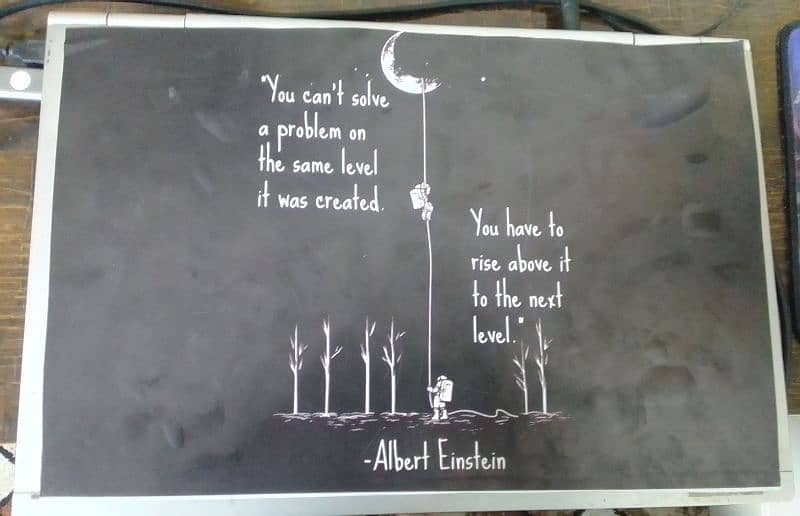 "You can't solve
a problem on
the same level
it was created.
You have to
rise above it
to the next
level."
-Albert Einstein